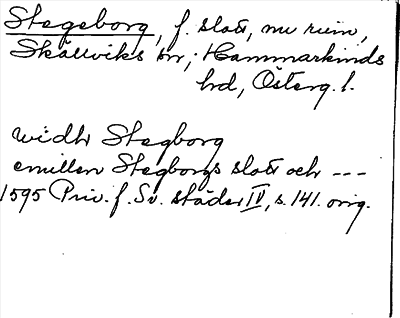 Stegeborg, f. slott, nu ruin,
Skällviks sn, Hammarkinds
hrd, Österg. l.
widh Stegborg
emillan Stegborgs slott och ---
1595 Priv. f. Sv. städer IV, s. 141. orig.